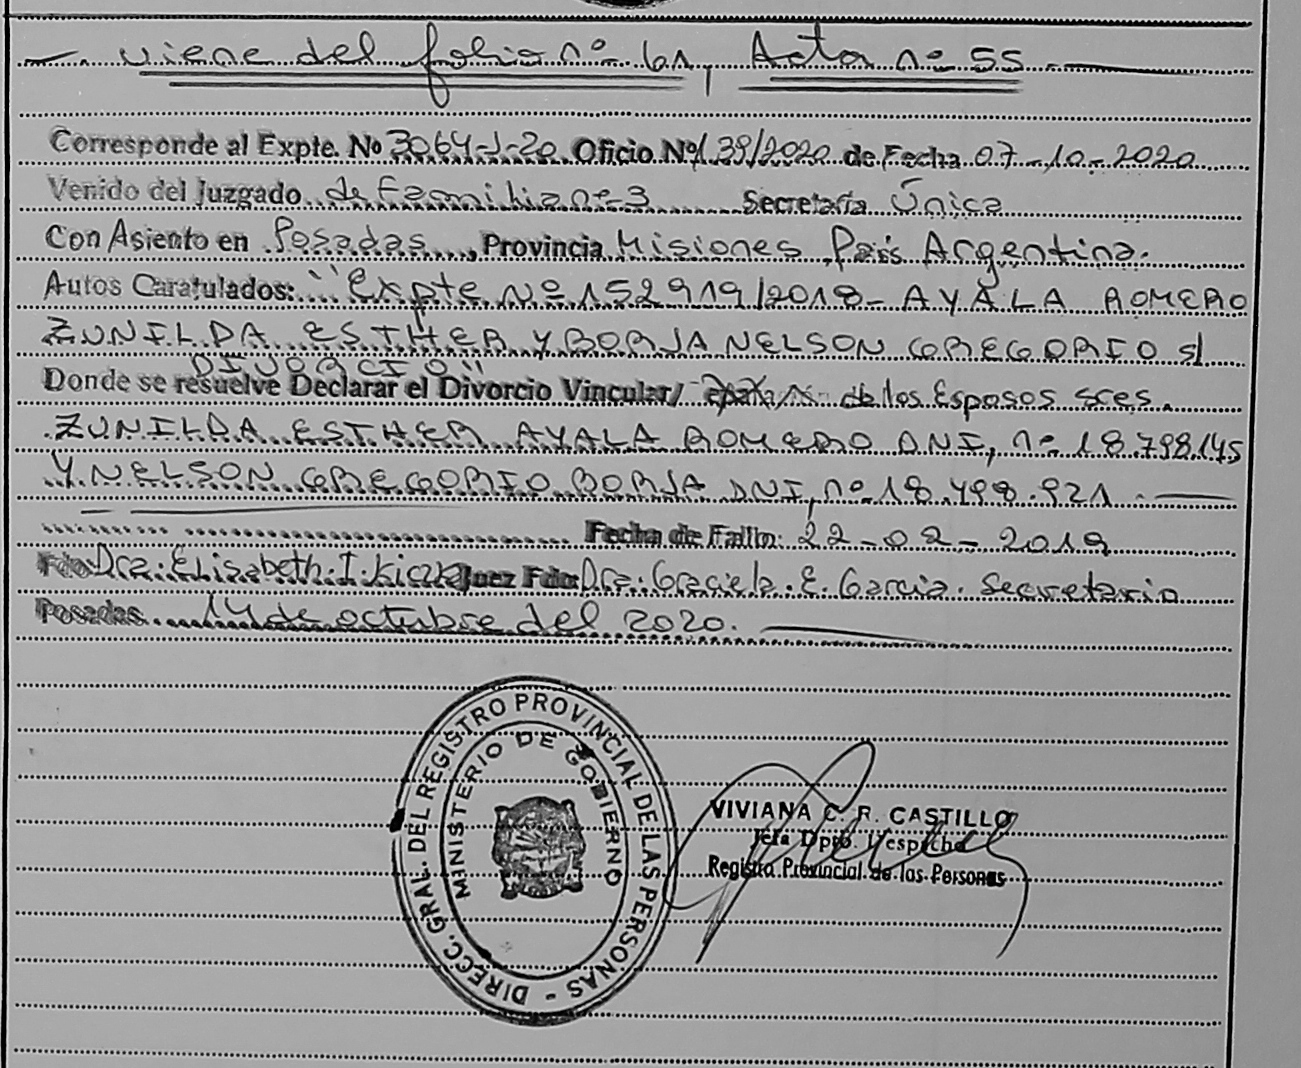 viene del folio nº 61, Acta nº 55
Corresponde al Expte. No 3064-J-20 Oficio Nº 139/2020 de Fecha 07-10-2020
Venido del Juzgado de Familia nº 3 Secretaría Única
Con Asiento en Posadas, Provincia Misiones País Argentina.
Autos Caratulados: "Expte Nº 152919/2018- AYALA ROMERO
ZUNILDA ESTHER Y BORJA NELSON GREGORIO s/
DIVORCIO"
Donde se resuelve Declarar el Divorcio Vincular/ de los Esposos sres.
ZUNILDA ESTHER AYALA ROMERO DNI, nº 18.798.145
Y NELSON GREGORIO BORJA DNI, nº 18.498.921.
Fecha de Fallo: 22-02-2019
Fdo Dra. Elisabeth. I. Juez Fdo: Dra. Graciela. E. Garcia. Secretario
Posadas 14 de octubre del 2020.
DIRECC. GRAL. DEL REGISTRO PROVINCIAL DE LAS PERSONAS -
MINISTERIO DE GOBIERNO
VIVIANA C. R. CASTILLO
Jefa Dpto. Despacho
Registro Provincial de las Personas